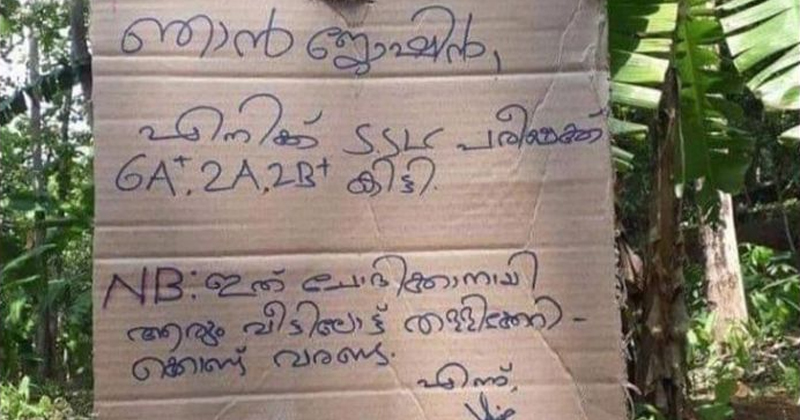 ഞാൻ ജോഷിൻ,
എനിക്ക് SSLC പരീക്ഷക്ക്
6A+, 2A, 2B+ കിട്ടി.
NB: ഇത് ചോദിക്കാനായി
ആരും വീട്ടിലോട്ട്
കൊണ്ട് വരണ്ട.
എന്ന്,